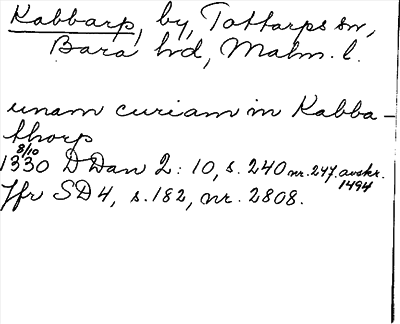 Kabbarp, by, Tottarps sn,
Bara hd, Malm. l.
unam curiam in Kabba-
thorp
8/10
1330 D Dan 2: 10, s. 240 nr. 247. avskr.
1494
Jfr SD4, s. 182, nr. 2808.